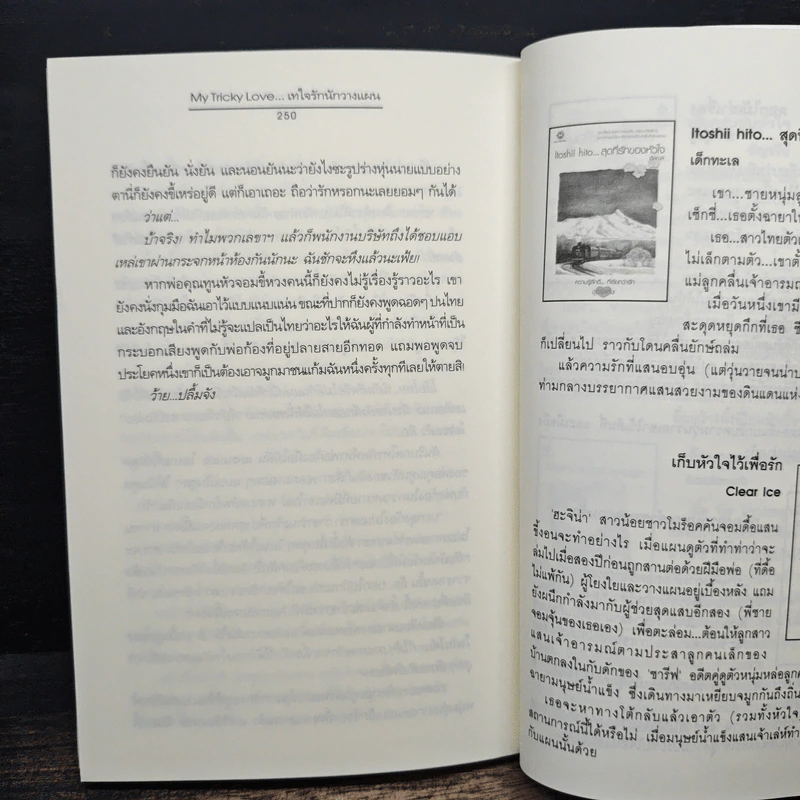 My Tricky Love... เทใจรักนักวางแผน
250
ก็ยังคงยืนยัน นั่งยัน และนอนยันนะว่ายังไงซะรูปร่างหุ่นนายแบบอย่าง
ตานี่ก็ยังคงขี้เหร่อยู่ดี แต่ก็เอาเถอะ ถือว่ารักหรอกนะเลยยอมๆ กันได้
ว่าแต่...
บ้าจริง! ทำไมพวกเลขาฯ แล้วก็พนักงานบริษัทถึงได้ชอบแอบ
เหล่เขาผ่านกระจกหน้าห้องกันนักนะ ฉันชักจะหึงแล้วนะเฟ้ย!
หากพ่อคุณทูนหัวจอมขี้หวงคนนี้ก็ยังคงไม่รู้เรื่องรู้ราวอะไร เขา
ยังคงนั่งกุมมือฉันเอาไว้แบบแนบแน่น ขณะที่ปากก็ยังคงพูดฉอดๆ ปนไทย
และอังกฤษในคำที่ไม่รู้จะแปลเป็นไทยว่าอะไรให้ฉันผู้ที่กำลังทำหน้าที่เป็น
กระบอกเสียงพูดกับพ่อก้องที่อยู่ปลายสายอีกทอด แถมพอพูดจบ
ประโยคหนึ่งเขาก็เป็นต้องเอาจมูกมาชนแก้มฉันหนึ่งครั้งทุกทีเลยให้ตายสิ!
ว้าย...ปลื้มจัง
Itoshii hito... สุดที่รักของหัวใจ
เด็กทะเล
Itoshii hito... สุด
เด็กทะเล
เขา...ชายหนุ่ม
เซ็กซี่...เธอตั้งฉายา
เธอ...สาวไทยตัว
ไม่เล็กตามตัว...เขา
แม่ลูกคลื่นเจ้าอารมณ์
เมื่อวันหนึ่งเขา
สะดุดหยุดกึกที่เธอ
ก็เปลี่ยนไป ราวกับโดนคลื่นยักษ์ถล่ม
แล้วความรักที่แสนอบอุ่น (แต่วุ่นวายจน
ท่ามกลางบรรยากาศแสนสวยงามของดินแดนแห่ง
เก็บหัวใจไว้เพื่อรัก
Clear Ice
'ฮะจิน่า' สาวน้อยชาวโมร็อคคันจอมดื้อแสน
ขี้งอนจะทำอย่างไร เมื่อแผนดูตัวที่ทำท่าว่าจะ
ล่มไปเมื่อสองปีก่อนถูกสานต่อด้วยฝีมือพ่อ (ที่ดื้อ
ไม่แพ้กัน) ผู้โยงใยและวางแผนอยู่เบื้องหลัง แถม
ยังผนึกกำลังมากับผู้ช่วยสุดแสบอีกสอง (พี่ชาย
จอมจุ้นของเธอเอง) เพื่อตะล่อม...ต้อนให้ลูกสาว
แสนเจ้าอารมณ์ตามประสาลูกคนเล็กของ
บ้านตกลงในกับดักของ 'ชารีฟ' อดีตคู่ดูตัวหนุ่มหล่อ
ฉายามนุษย์น้ำแข็ง ซึ่งเดินทางมาเหยียบจมูกกันถึงถิ่น
เธอจะหาทางโต้กลับแล้วเอาตัว (รวมทั้งหัวใจ
สถานการณ์นี้ได้หรือไม่ เมื่อมนุษย์น้ำแข็งแสนเจ้าเล่ห์
กับแผนนั้นด้วย